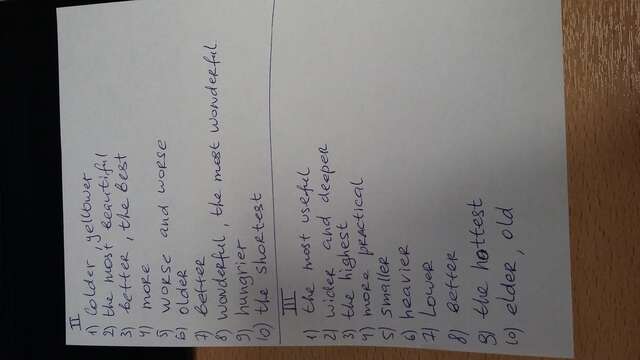 II
1) Colder, yellower
2) the most beautiful
3) better, the best
4) more
5) worse and worse
6) older
7) better
8) wonderful, the most wonderful
9) hungrier
10) the shortest
III
1) the most useful
2) wider and deeper
3) the highest
4) more practical
5) smaller
6) heavier
7) Lower
8) better
9) the hottest
10) elder, old